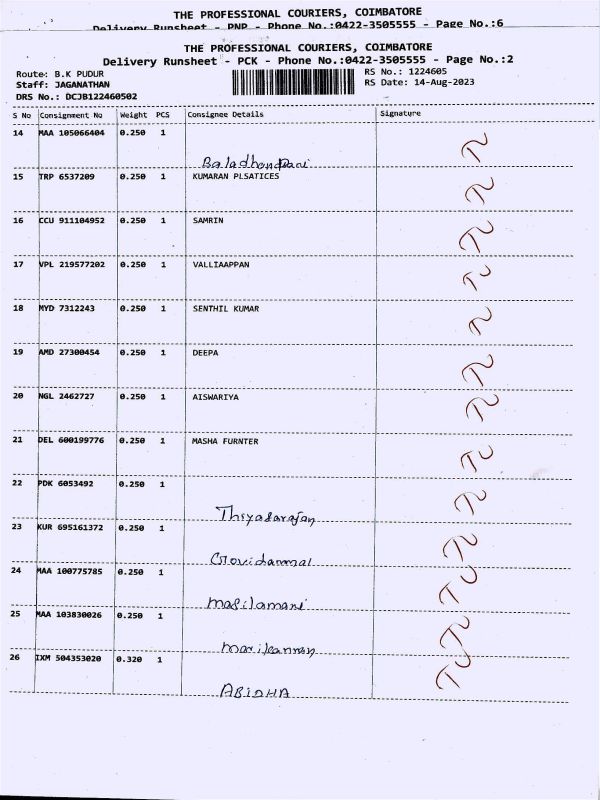 THE PROFESSIONAL COURIERS, COIMBATORE
Delivery Runsheet - PNP - Phone No.:0422-3505555 - Page No.:6
THE PROFESSIONAL COURIERS, COIMBATORE
Delivery Runsheet - PCK - Phone No.:0422-3505555 - Page No.:2
Route: B.K PUDUR RS No.: 1224605
Staff: JAGANATHAN RS Date: 14-Aug-2023
DRS No.: DCJB122460502
S No Consignment No Weight PCS Consignee Details Signature
14 MAA 105066404 0.250 1
Baladhandpani
15 TRP 6537209 0.250 1 KUMARAN PLSATICES
16 CCU 911104952 0.250 1 SAMRIN
17 VPL 219577202 0.250 1 VALLIAAPPAN
18 MYD 7312243 0.250 1 SENTHIL KUMAR
19 AMD 27300454 0.250 1 DEEPA
20 NGL 2462727 0.250 1 AISWARIYA
21 DEL 600199776 0.250 1 MASHA FURNTER
22 PDK 6053492 0.250 1
Thiyagarajan
23 KUR 695161372 0.250 1
Govidammal
24 MAA 100775785 0.250 1
Masilamani
25 MAA 103830026 0.250 1
Marikannan
26 IXM 504353020 0.320 1
ABIDHA